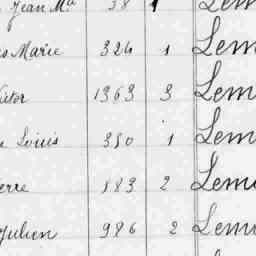 Jean Ma 38 1 Lem
Marie 324 1 Lem
ctor 1363 3 Lem
Louis 350 1 Lem
erre 183 2 Lem
Julien 986 2 Lem